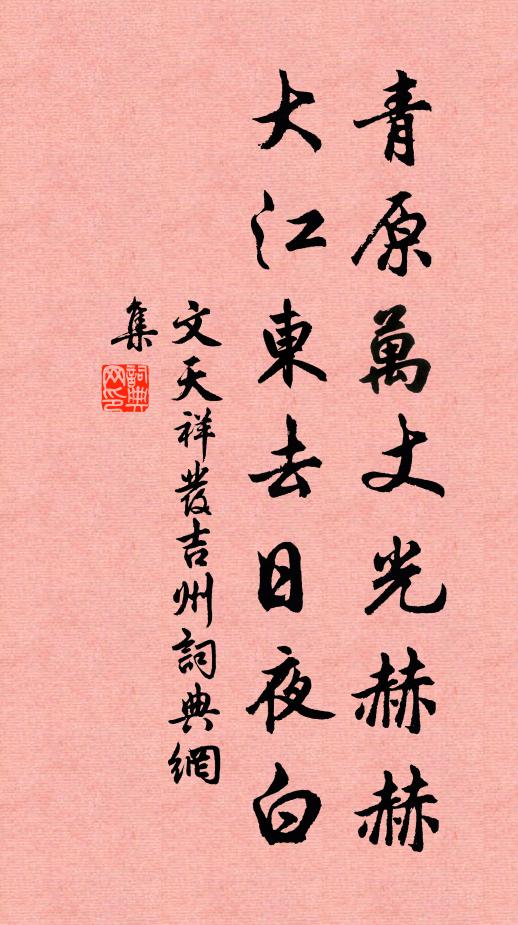 青原萬丈光赫赫
大江東去日夜白
文天祥發吉州詞典網
集
詞典
网印